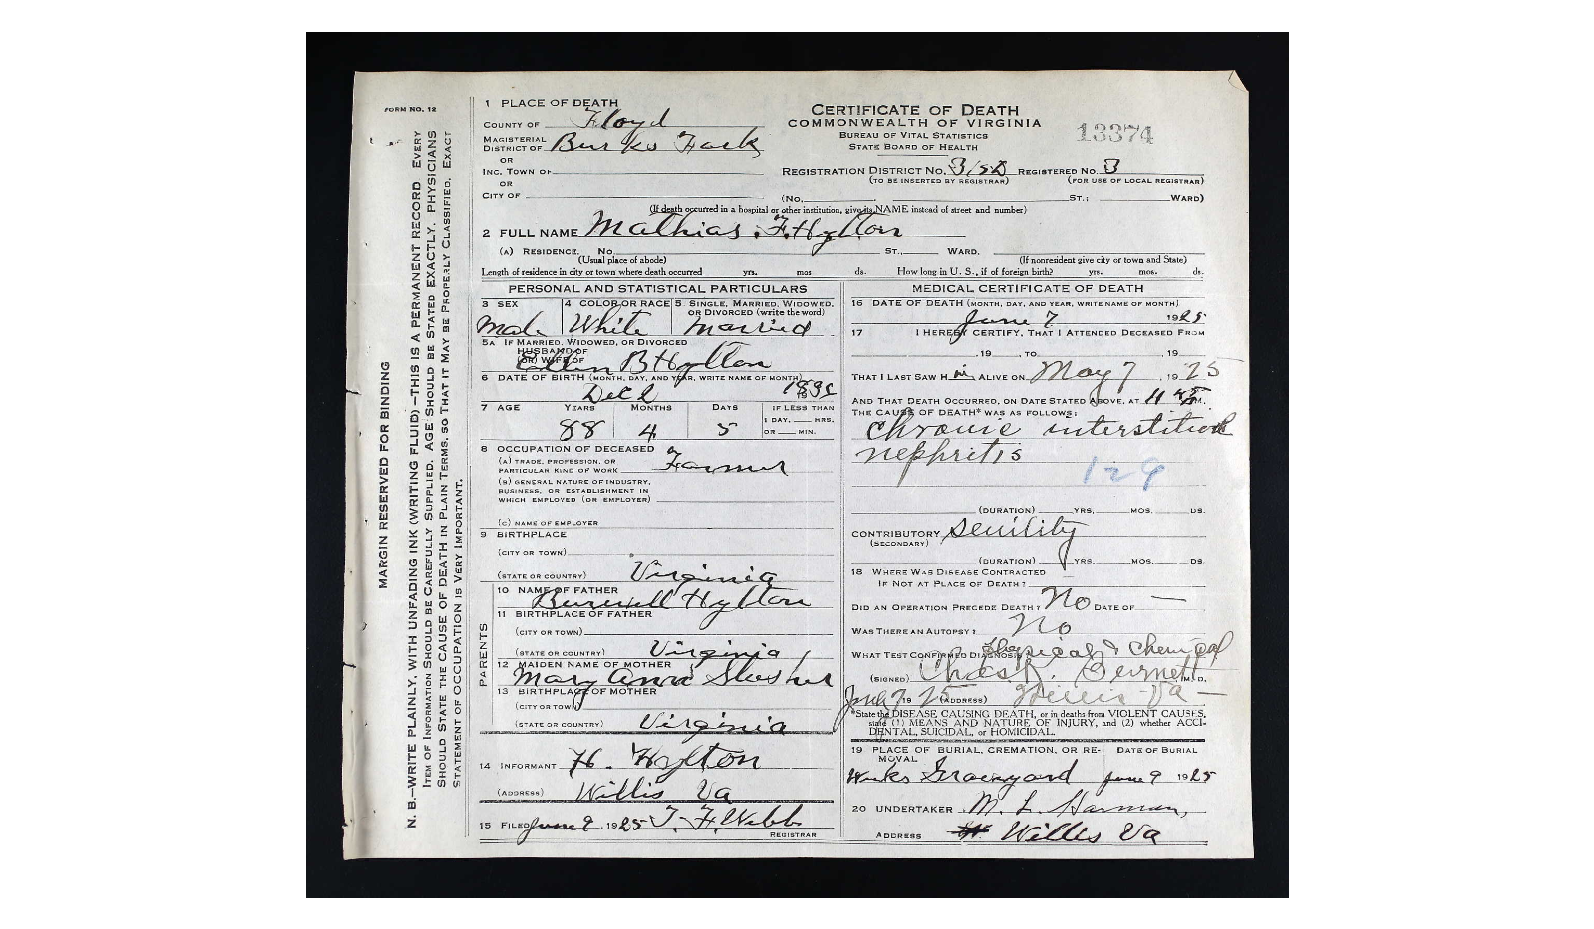 FORM NO. 12
MARGIN RESERVED FOR BINDING
N. B.—WRITE PLAINLY, WITH UNFADING INK (WRITING FLUID)—THIS IS A PERMANENT RECORD. EVERY
ITEM OF INFORMATION SHOULD BE CAREFULLY SUPPLIED. AGE SHOULD BE STATED EXACTLY. PHYSICIANS
SHOULD STATE THE CAUSE OF DEATH IN PLAIN TERMS, SO THAT IT MAY BE PROPERLY CLASSIFIED. EXACT
STATEMENT OF OCCUPATION IS VERY IMPORTANT.
1 PLACE OF DEATH
COUNTY OF Floyd
MAGISTERIAL DISTRICT OF Burks Fork
OR
INC. TOWN OF
OR
CITY OF
CERTIFICATE OF DEATH
COMMONWEALTH OF VIRGINIA
BUREAU OF VITAL STATISTICS
STATE BOARD OF HEALTH
13374
REGISTRATION DISTRICT NO. REGISTERED NO. 3
(TO BE INSERTED BY REGISTRAR) (FOR USE OF LOCAL REGISTRAR)
(No. ST.; WARD)
(If death occurred in a hospital or other institution, give its NAME instead of street and number)
2 FULL NAME Mathias F. Hylton
(A) RESIDENCE. No. ST., WARD.
(Usual place of abode) (If nonresident give city or town and State)
Length of residence in city or town where death occurred yrs. mos ds. How long in U. S., if of foreign birth? yrs. mos. ds.
PERSONAL AND STATISTICAL PARTICULARS
3 SEX 4 COLOR OR RACE 5 SINGLE, MARRIED, WIDOWED, OR DIVORCED (write the word)
Male White Married
5A IF MARRIED, WIDOWED, OR DIVORCED
HUSBAND OF
(OR) WIFE OF B Hylton
6 DATE OF BIRTH (MONTH, DAY, AND YEAR, WRITE NAME OF MONTH)
Dec 2
7 AGE YEARS MONTHS DAYS IF LESS THAN
1 DAY, HRS.
OR MIN.
88 4 5
8 OCCUPATION OF DECEASED
(A) TRADE, PROFESSION, OR
PARTICULAR KIND OF WORK Farmer
(B) GENERAL NATURE OF INDUSTRY,
BUSINESS, OR ESTABLISHMENT IN
WHICH EMPLOYED (OR EMPLOYER)
(C) NAME OF EMPLOYER
9 BIRTHPLACE
(CITY OR TOWN)
(STATE OR COUNTRY) Virginia
PARENTS
10 NAME OF FATHER
Burwell Hylton
11 BIRTHPLACE OF FATHER
(CITY OR TOWN)
(STATE OR COUNTRY) Virginia
12 MAIDEN NAME OF MOTHER
Mary Ann Slusher
13 BIRTHPLACE OF MOTHER
(CITY OR TOWN)
(STATE OR COUNTRY) Virginia
14 INFORMANT H. Hylton
(ADDRESS) Willis Va
15 FILED June 9, 1925 T. F. Webb
REGISTRAR
MEDICAL CERTIFICATE OF DEATH
16 DATE OF DEATH (MONTH, DAY, AND YEAR, WRITE NAME OF MONTH)
June 7 1925
17 I HEREBY CERTIFY, THAT I ATTENDED DECEASED FROM
, 19 , TO , 19
THAT I LAST SAW H im ALIVE ON May 7, 1925
AND THAT DEATH OCCURRED, ON DATE STATED ABOVE, AT 11 M.
THE CAUSE OF DEATH* WAS AS FOLLOWS:
chronic interstitial
nephritis
129
(DURATION) YRS. MOS. DS.
CONTRIBUTORY Senility
(SECONDARY)
(DURATION) YRS. MOS. DS.
18 WHERE WAS DISEASE CONTRACTED
IF NOT AT PLACE OF DEATH?
DID AN OPERATION PRECEDE DEATH? No DATE OF —
WAS THERE AN AUTOPSY? No
WHAT TEST CONFIRMED DIAGNOSIS Physical & Chemical
(SIGNED) Chas. Burnett, M. D.
7 1925 (ADDRESS) Willis Va —
*State the DISEASE CAUSING DEATH, or in deaths from VIOLENT CAUSES,
state (1) MEANS AND NATURE OF INJURY, and (2) whether ACCI-
DENTAL, SUICIDAL, or HOMICIDAL.
19 PLACE OF BURIAL, CREMATION, OR RE- DATE OF BURIAL
MOVAL
Weeks Graveyard June 9 1925
20 UNDERTAKER M. L. Harman,
ADDRESS Willis Va